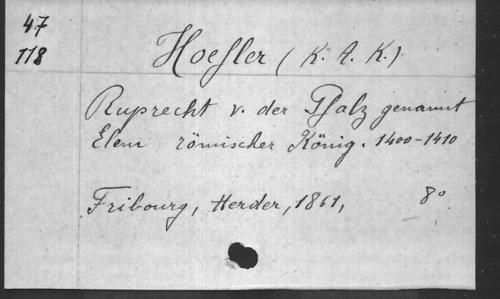 47
118
Hoefler (K. A. K.)
Ruprecht v. der Pfalz genannt
Clem römischer König. 1400-1410
Fribourg, Herder, 1861, 8°